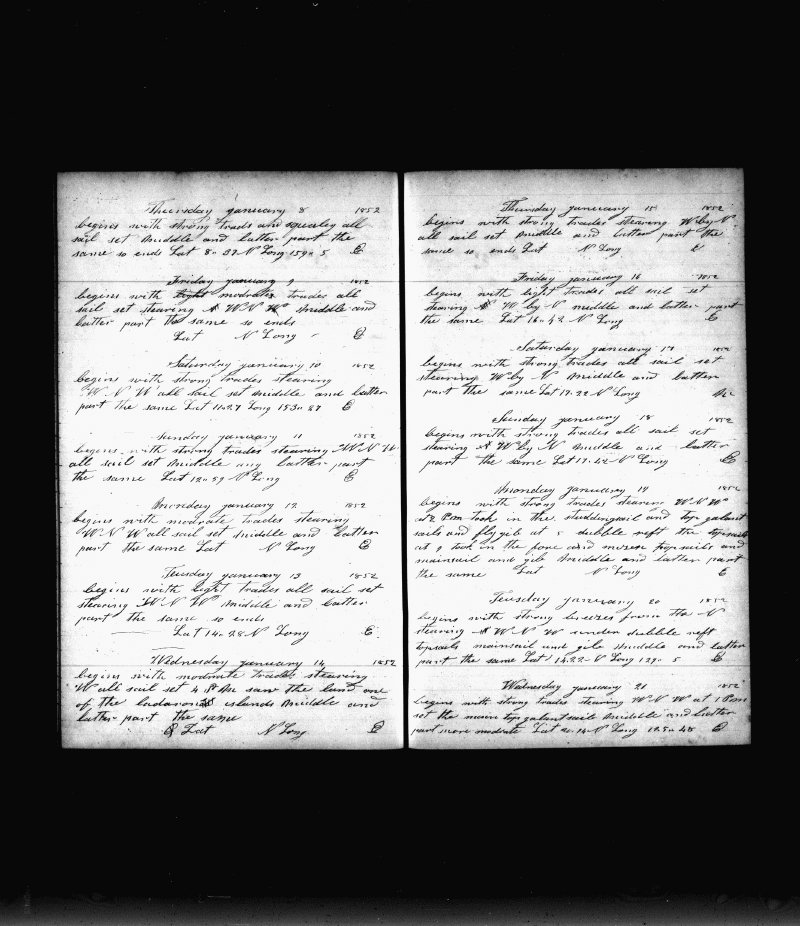 Thursday january 8 1852
begins with strong trads and squaley all
sail set middle and latter part the
same so ends Lat 8n 37 N Long 159n 5 E
Friday january 9 1852
begins with modrate trades all
sail set stearing W N W middle and
latter part the same so ends
Lat N Long E
Saturday january 10 1852
begins with strong trades stearing
W N W all sail set middle and latter
part the same Lat 11n27 Long 153n 27 E
Sunday january 11 1852
begins with strong trades stearing W N W
all sail set middle any latter part
the same Lat 12n59 N Long E
Monday january 12 1852
begins with modrate trades stearing
W N W all sail set middle and latter
part the same Lat N Long E
Tuesday january 13 1852
begins with light trades all sail set
stearing W N W middle and latter
part the same so ends
Lat 14n28 N Long E
Wednesday january 14 1852
begins with modrate trades stearing
W all sail set 4 P M saw the land one
of the ladarones islands middle and
latter part the same
Lat N Long E
Thursday january 15 1852
begins with strong trades stearing W by N
all sail set middle and latter part the
same so ends Lat N Long E
Friday january 16 1852
begins with light trades all sail set
stearing W by N middle and latter part
the same Lat 16n42 N Long E
Saturday january 17 1852
begins with strong trades all sail set
stearing W by N middle and latter
part the same Lat 17n22 N Long
Sunday january 18 1852
begins with strong trades all sail set
stearing W by N middle and latter
part the same Lat 17n42 N Long E
Monday january 19 1852
begins with strong trades stearin W N W
at 2 P m took in the studdingsail and top galant
sails and fly gib at 5 dubble reft the topsails
at 9 took in the fore and mizen topsails and
mainsail and gib middle and latter part
the same Lat N Long E
Tuesday january 20 1852
begins with strong breezes from the N
stearing W N W under dubble reft
topsails mainsail and gib middle and latter
part the same Lat 19n22 N Long 129n 5 E
Wednesday january 21 1852
begins with strong trades stearing W N W at 1 P m
set the main top galantsail middle and latter
part more modrate Lat 20n14 N Long 125n 45 E